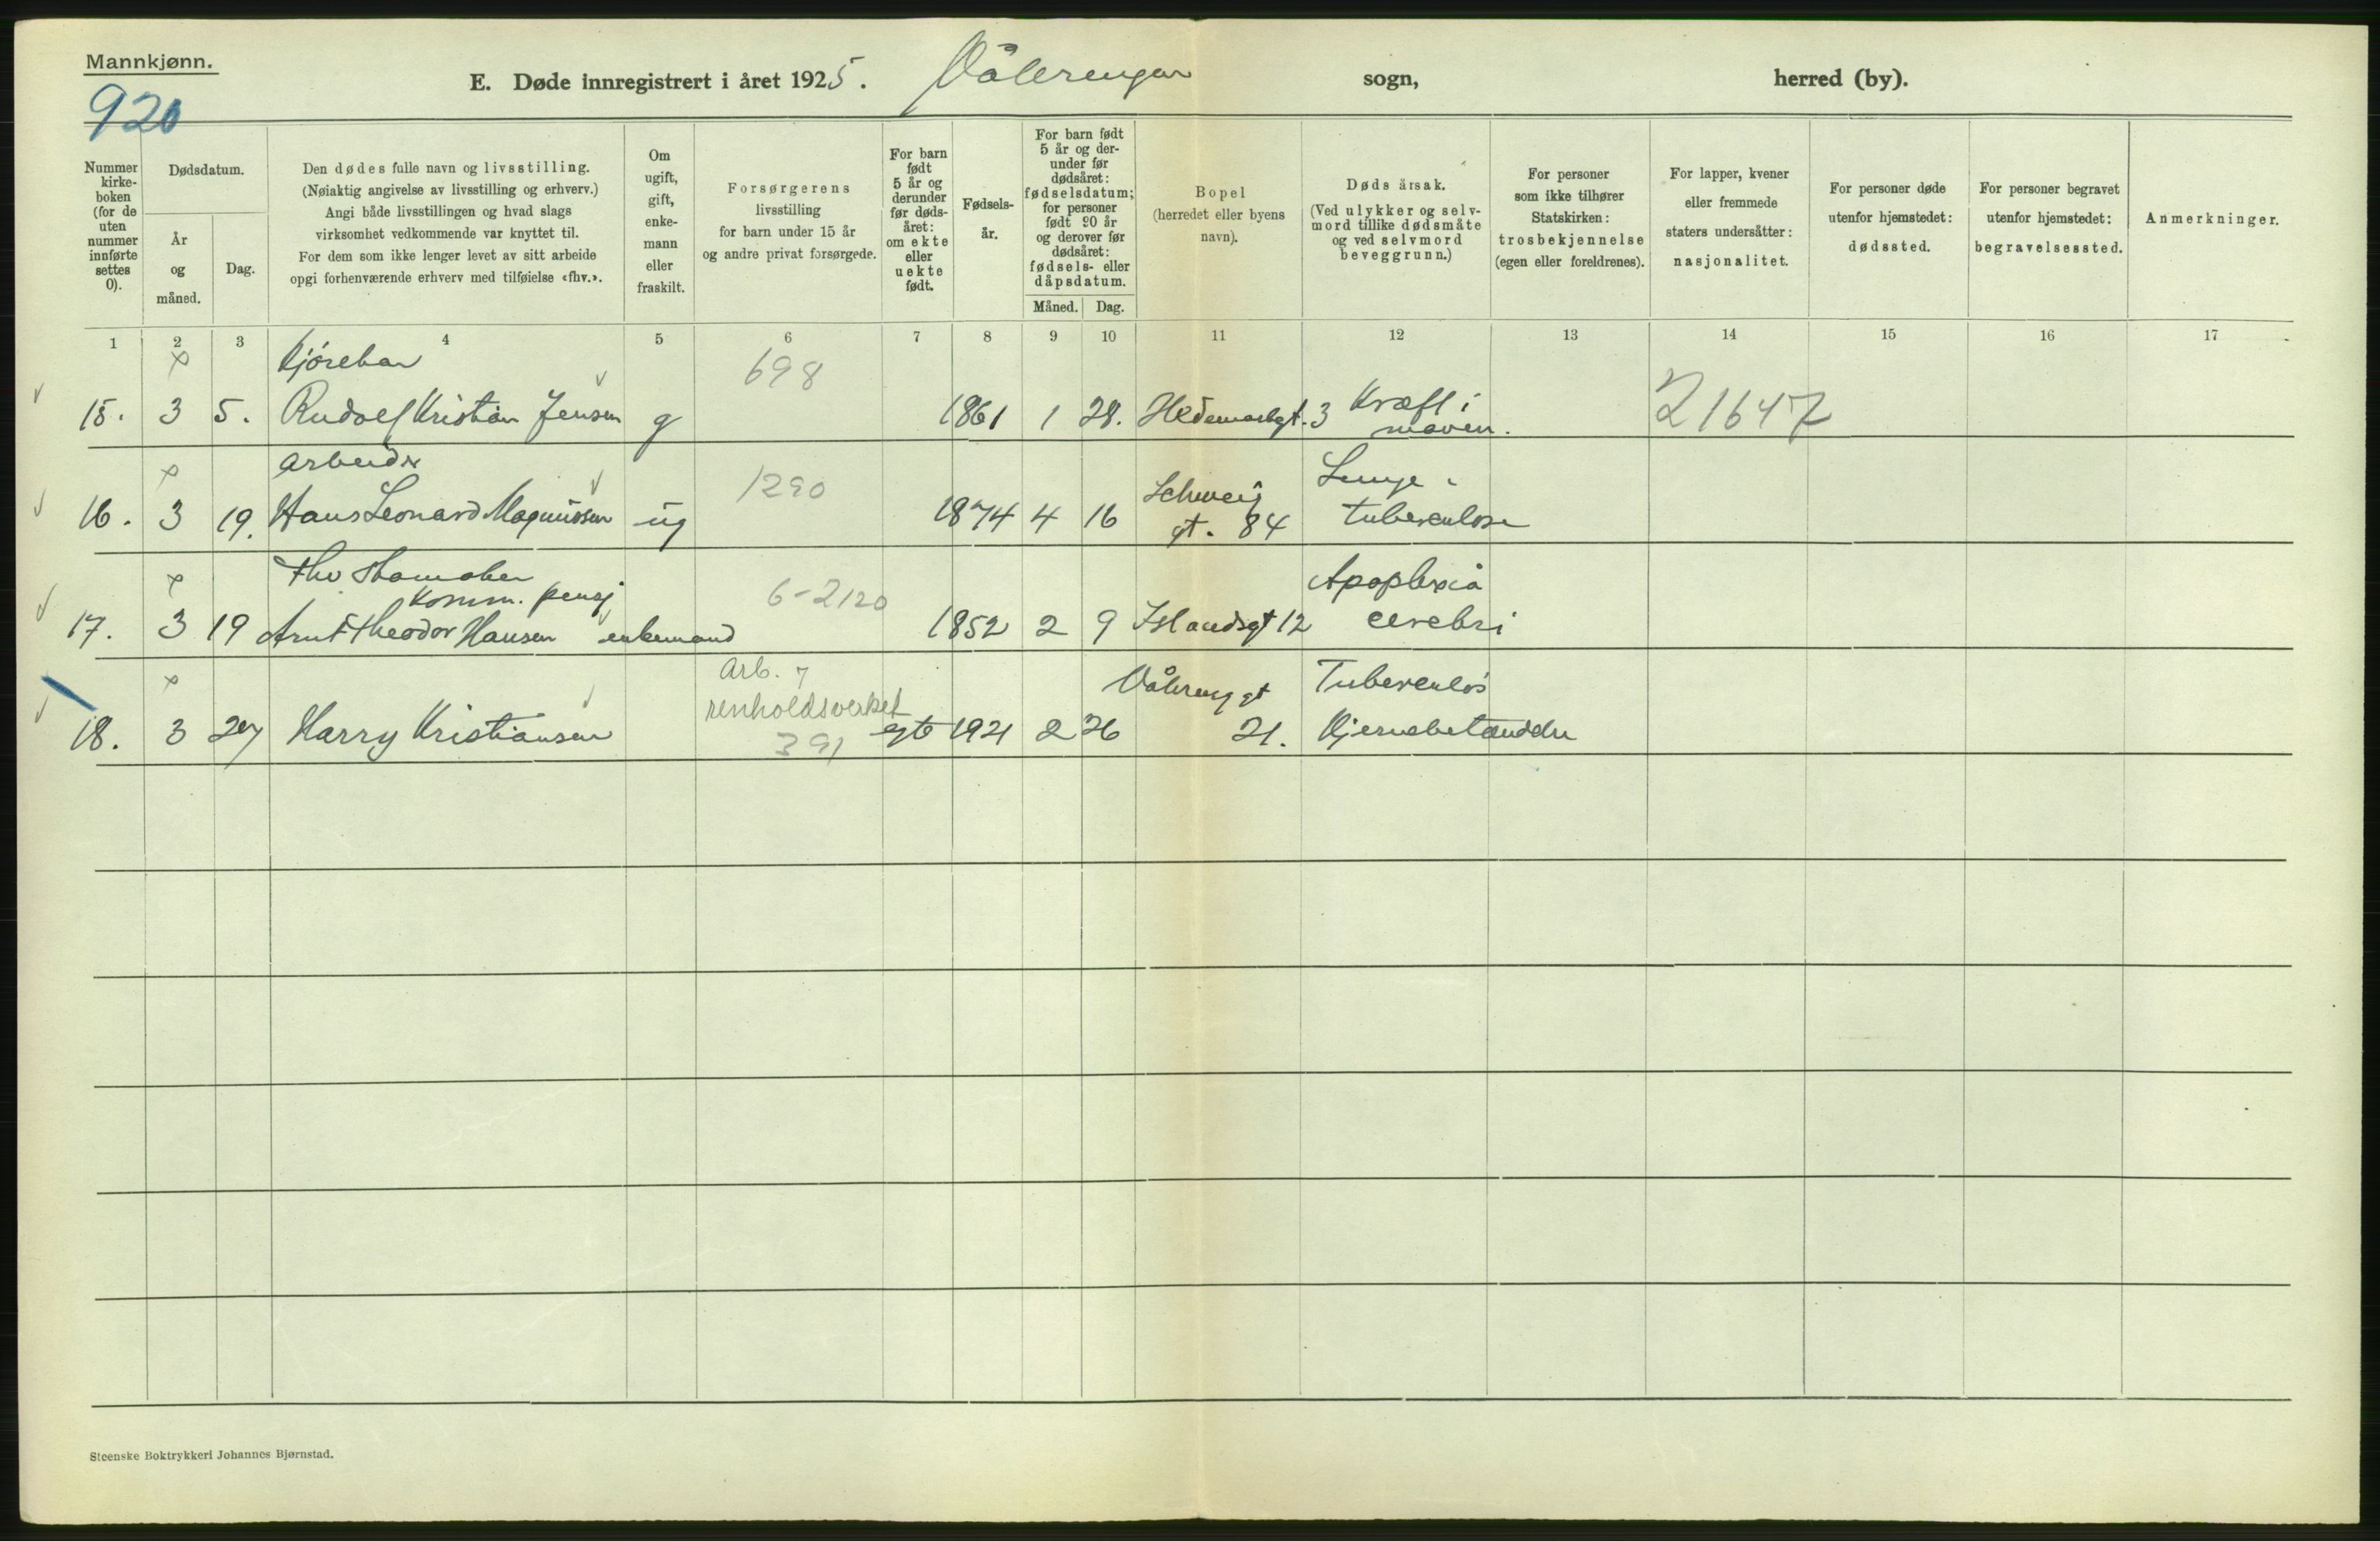 Mannkjønn.
920
E. Døde innregistrert i året 1925. Vålerengen sogn, herred (by).
Nummer
kirke-
boken
(for de
uten
nummer
innførte
settes
0).
Dødsdatum.
År
og
måned.
Dag.
Den dødes fulle navn og livsstilling.
(Nøiaktig angivelse av livsstilling og erhverv.)
Angi både livsstillingen og hvad slags
virksomhet vedkommende var knyttet til.
For dem som ikke lenger levet av sitt arbeide
opgi forhenværende erhverv med tilføielse «fhv.».
Om
ugift,
gift,
enke-
mann
eller
fraskilt.
Forsørgerens
livsstilling
for barn under 15 år
og andre privat forsørgede.
For barn
født
5 år og
derunder
før døds-
året:
om ekte
eller
uekte
født.
Fødsels-
år.
For barn født
5 år og der-
under før
dødsåret:
fødselsdatum;
for personer
født 90 år
og derover før
dødsåret:
fødsels- eller
dåpsdatum.
Måned. Dag.
Bopel
(herredet eller byens
navn).
Dødsårsak.
(Ved ulykker og selv-
mord tillike dødsmåte
og ved selvmord
beveggrunn.)
For personer
som ikke tilhører
Statskirken:
trosbekjennelse
(egen eller foreldrenes).
For lapper, kvener
eller fremmede
staters undersåtter:
nasjonalitet.
For personer døde
utenfor hjemstedet:
dødssted.
For personer begravet
utenfor hjemstedet:
begravelsessted.
Anmerkninger.
1 2 3 4 5 6 7 8 9 10 11 12 13 14 15 16 17
Kjørekar 698
15. 3 5. Rudolf Kristian Jensen g 1861 1 28. Hedemarkgt. 3 Kræft i
maven.
21647
Arbeider 1290
16. 3 19. Hans Leonard Magnussen ug 1874 4 16 Schweig
gt. 84
Lunge-
tuberculose
fhv
komm. pensj 6-2120
17. 3 19 Arnt Theodor Hansen enkemand 1852 2 9 Islandsgt 12 Apoplexia
cerebri
Arb. v
renholdsverket
391
18. 3 27 Harry Kristiansen egte 1921 2 26 Vålereng gt
21.
Tuberculøs
Hjernebetændelse
Steenske Boktrykkeri Johannes Bjørnstad.